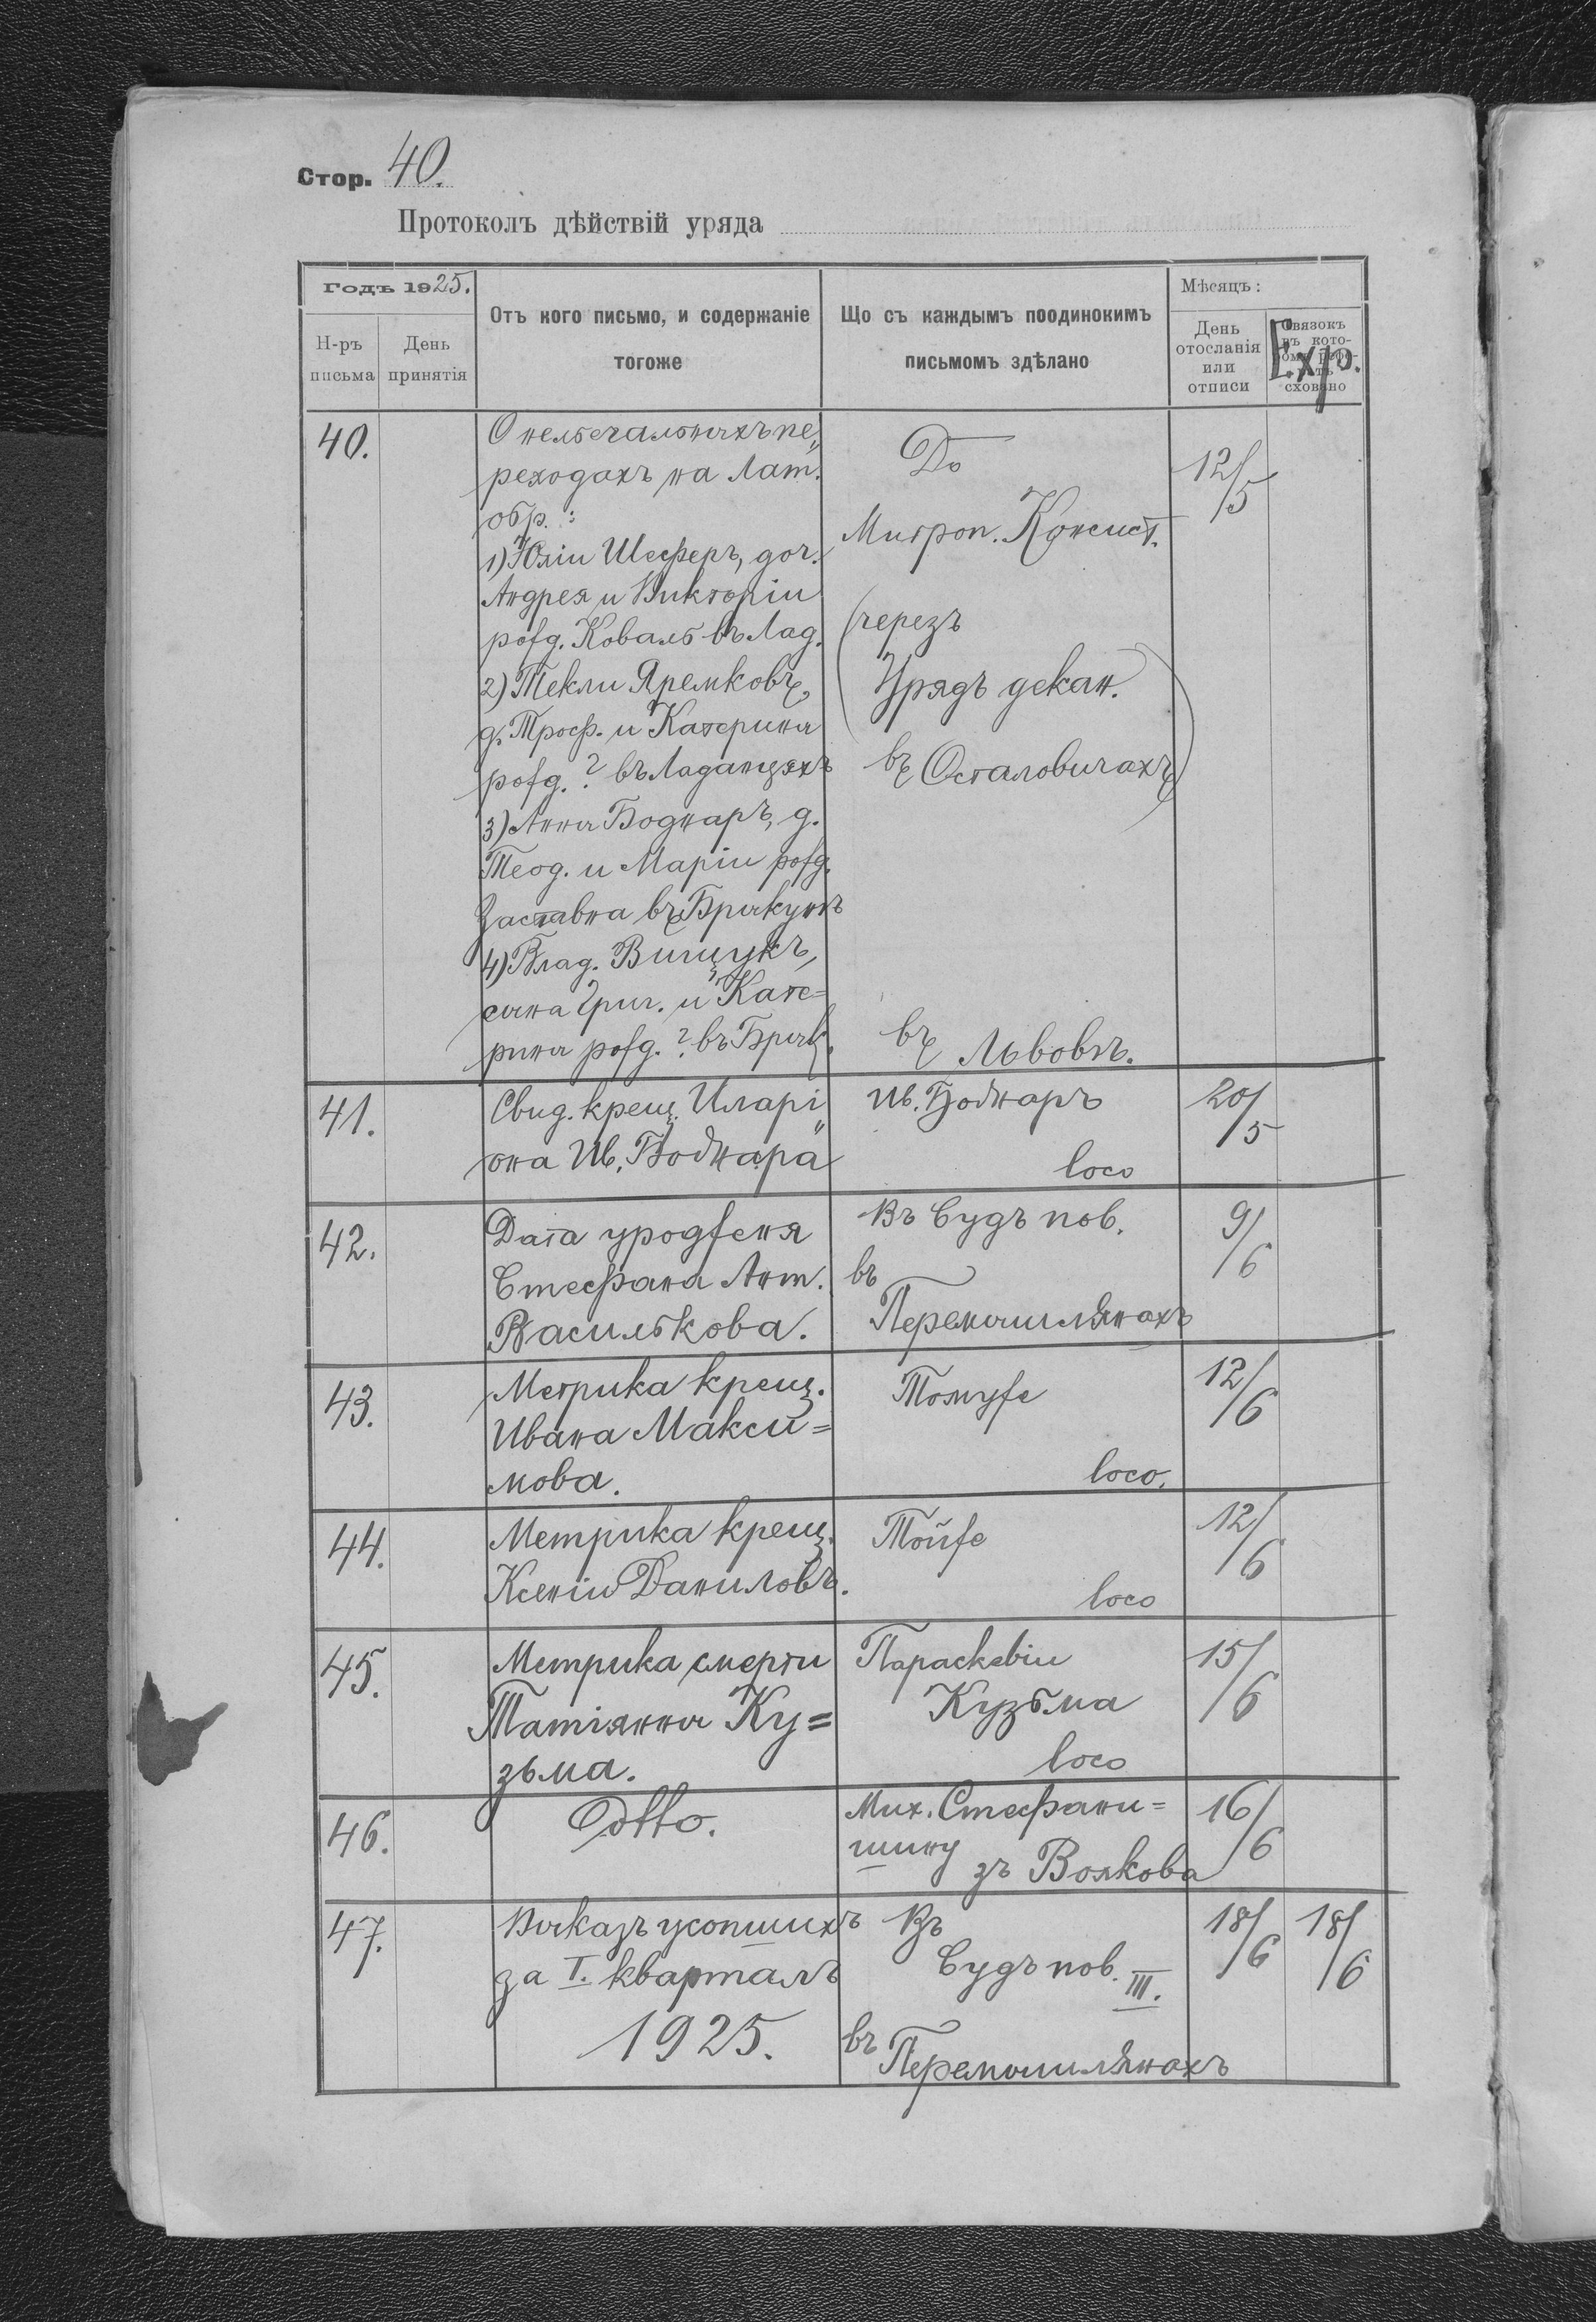 Стор. 40.
Протоколъ дѣйствій уряда
Годъ 1925.
Н-ръ письма
День принятія
Отъ кого письмо, и содержаніе
тогоже
Що съ каждымъ поодинокимъ
письмомъ здѣлано
Мѣсяцъ:
День
отосланія
или
отписи
Связокъ
въ кото-
сховано
Exp.
40.
О нелегальныхъ пе„
реходахъ на Лат.
обр.:
1) Юліи Шефферъ, доч.
Андрея и Викторіи
рожд. Коваль въ Лад.
2) Текли Яремковъ,
д. Троф. и Катерины
рожд. ? въ Ладанцяхъ
3) Анны Боднаръ, д.
Теод. и Маріи рожд.
Заставна въ Брыкунѣ
4) Влад. Вищукъ,
сына Григ. и Кате=
рины рожд. ? въ Брык.
До
Митроп. Консист.
(черезъ
Урядъ декан.
въ Осталовичахъ)
въ Львовѣ.
12/5
41.
Свид. крещ. Иларі„
она Ив. Боднара
Ив. Боднаръ
loco
20/5
42.
Дата уродженя
Стефана Ант.
Василькова.
Въ Судъ пов.
въ
Перемышлянахъ
9/6
43.
Метрика крещ.
Ивана Макси=
мова.
Томуже
loco.
12/6
44.
Метрика крещ.
Ксеніи Даниловъ.
Тойже
loco
12/6
45.
Метрика смерти
Татіянны Ку=
зьма.
Параскевіи
Кузьма
loco
15/6
46.
Dtto.
Мих. Стефани=
шину
зъ Волкова
16/6
47.
Выказъ усопшихъ
за I. кварталъ
1925.
Въ
Судъ пов. III.
въ
Перемышлянахъ
18/6
18/6